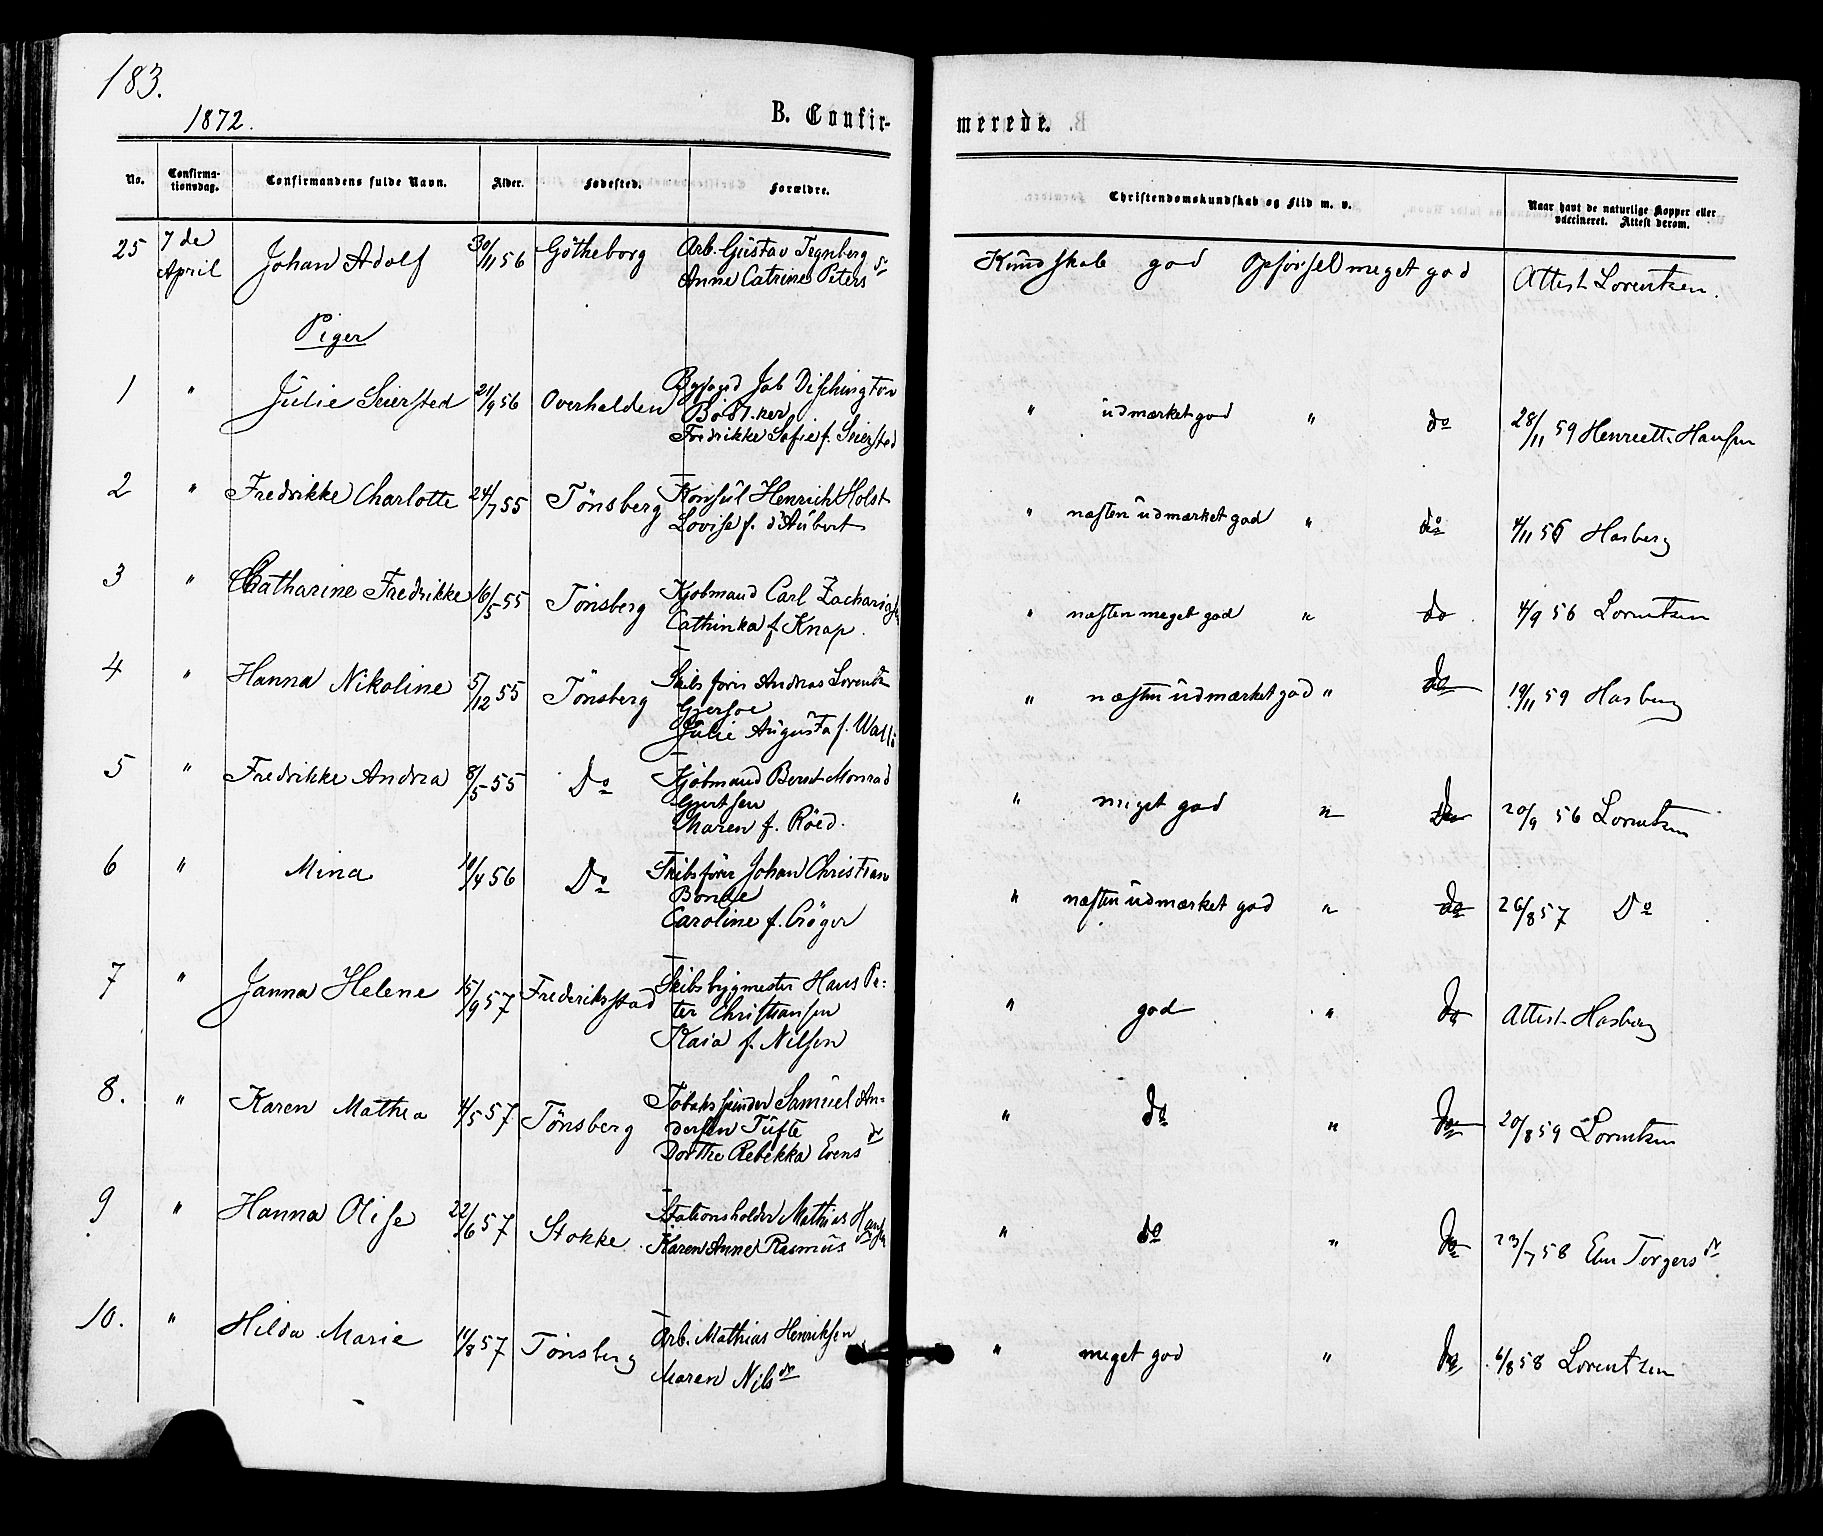 183.
1872.
B. Confir-
merede.
No. Confirmationsdag. Confirmandens fulde Navn. Alder. Fødested. Forældre. Christendomskundskab og Flid m. v. Naar havt de naturlige Kopper eller vaccineret. Attest derom.
25 7de April Johan Adolf 30/11 56 Götheborg Arb. Gustav Tegnberg Kundskab god Opførsel meget god Attest Lorentzen.
Anne Catrine Peters dr
Piger
1 " Julie Seiersted 21/9 56 Overhalden Byfogd Jab Dischington " udmærket god " do 28/11 59 Henriett. Hansen
Bödtker
Fredrikke Sofie f. Seiersted
2 " Fredrikke Charlotte 24/7 55 Tönsberg Konsul Henrich Holst " næsten udmærket god " do 4/11 56 Hasberg
Lovise f. d'Aubert
3 " Catharine Fredrikke 16/5 55 Tönsberg Kjøbmand Carl Zachariasen " næsten meget god " do 4/9 56 Lorentzen
Cathinka f Knap.
4 " Hanna Nikoline 5/12 55 Tönsberg Skibsfører Andreas Lorentz " næsten udmærket god " do 19/11 59 Hasberg
Gjersøe
Julie Augusta f. Wallö
5 " Fredrikke Andrea 8/5 55 Do Kjøbmand Bernt Monrad " meget god " do 20/9 56 Lorentzen
Gjertsen
Maren f. Röed.
6 " Mina 10/4 56 Do Skibsfører Johan Christian " næsten udmærket god " do 26/8 57 Do
Bonde
Caroline f. Cröger
7 " Janna Helene 15/9 57 Frederiksstad Skibsbygmester Hans Pe- " god " do Attest Hasberg
ter Christiansen
Kaia f. Nilsen
8. " Karen Mathea 4/5 57 Tönsberg Tobaksspinder Samuel An- " do " do 20/8 59 Lorentzen
dersen Tufte
Dorthe Rebekka Evens dr
9 " Hanna Olise 22/6 57 Stokke Stationsholder Mathias Hansen " do " do 23/7 58 Torgers dr
Karen Anne Rasmus dr
10. " Hilda Marie 11/8 57 Tönsberg Arb. Mathias Henriksen " meget god " do 6/8 58 Lorentzen
Maren Nils dr